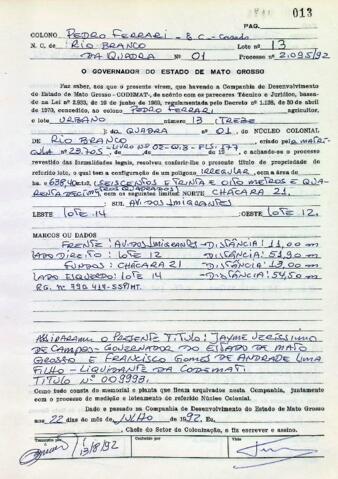 013
PAG.
COLONO PEDRO FERRARI - B.C. - Casado
N. C. de RIO BRANCO Lote n.º 13
DA QUADRA Nº 01 Processo n.º 2.095/92
O GOVERNADOR DO ESTADO DE MATO GROSSO
Faz saber, aos que o presente virem, que havendo a Companhia de Desenvolvimento
do Estado de Mato Grosso - CODEMAT-, de acordo com os pareceres Técnico e Jurídico, basea-
do na Lei n.º
de 1970, concedido, ao colono PEDRO FERRARI agricultor,
o lote URBANO número 13 (TREZE
) da QUADRA nº 01. DO NÚCLEO COLONIAL
DE RIO BRANCO, criado pela MATRÍ-
e achando-se o processo
revestido das formalidades legais, resolveu conferir-lhe o presente título de propriedade do
referido lote, o qual tem a configuração de um polígono IRREGULAR, com a área de
(SEISCENTOS E TRINTA E OITO METROS E QUA-
com os seguintes limites: NORTE CHÁCARA 21.
SUL AV. DOS IMIGRANTES
LESTE LOTE 14 OESTE LOTE 12.
MARCOS OU DADOS
FRENTE: AV. DOS IMIGRANTES - DISTÂNCIA: 11,00 m
LADO DIREITO: LOTE 12 DISTÂNCIA: 51,90 m
FUNDOS: CHÁCARA 21 DISTÂNCIA: 13,00 m
LADO ESQUERDO: LOTE 14 - DISTÂNCIA: 54,50 m
ASSINARAM O PRESENTE TÍTULO: JAYME VERÍSSIMO
DE CAMPOS - GOVERNADOR DO ESTADO DE MATO
GROSSO E FRANCISCO GOMES DE ANDRADE LIMA
FILHO - LIQUIDANTE DA CODEMAT.
TÍTULO Nº 009993.
Como tudo consta do memorial e planta que ficam arquivados nesta Companhia, juntamente
com o processo de medição e loteamento do referido Núcleo Colonial.
Dado e passado na Companhia de Desenvolvimento do Estado de Mato Grosso
aos 22 dias do mês de JULHO de 1992. Eu
, Chefe do Setor de Colonização, o fiz escrever e assino.
Transcrito por
Conferido por
Visto
13/8/92